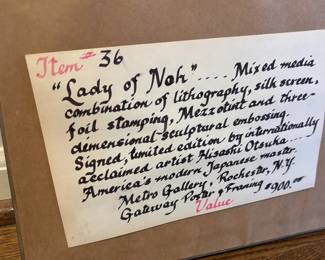 Item # 36
"Lady of Noh".... Mixed media
combination of lithography, silk screen,
foil stamping, Mezzotint and three-
demensional sculptural embossing.
Signed, limited edition by internationally
acclaimed artist Hisashi Otsuka....
America's modern Japanese master.
Metro Gallery, Rochester, N.Y.
Gateway Poster & Framing $900.00
Value